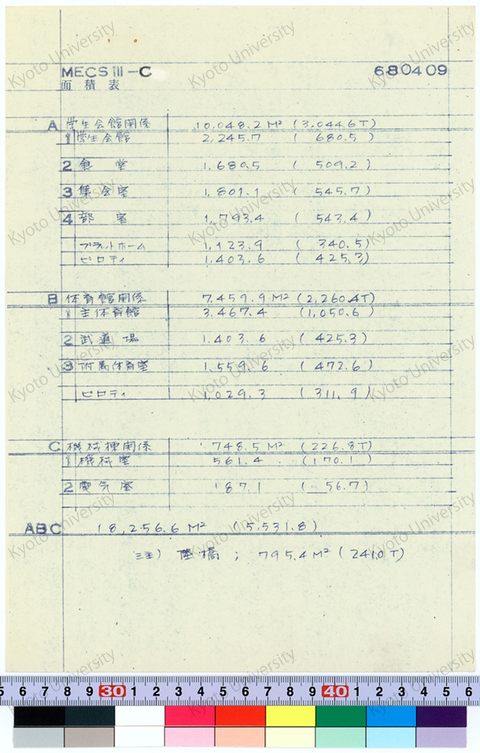 MECS III-C 680409
面積表
A 学生会館関係 10,048.2 M² (3,044.6T)
1 学生会館 2,245.7 ( 680.5)
2 食堂 1,680.5 ( 509.2)
3 集会室 1,801.1 ( 545.7)
4 部室 1,793.4 ( 543.4)
プラットホーム 1,123.9 ( 340.5)
ピロティ 1,403.6 ( 425.3)
B 体育館関係 7,459.9 M² (2,260.4T)
1 主体育館 3,467.4 (1,050.6)
2 武道場 1,403.6 ( 425.3)
3 付属体育室 1,559.6 ( 472.6)
ピロティ 1,029.3 ( 311.9)
C 機械棟関係 748.5 M² (226.8T)
1 機械室 561.4 (170.1)
2 電気室 187.1 ( 56.7)
ABC 18,256.6 M² (5,531.8)
注) 陸橋; 795.4 M² (241.0T)
5 6 7 8 9 30 1 2 3 4 5 6 7 8 9 40 1 2 3 4 5 6
Kyoto University